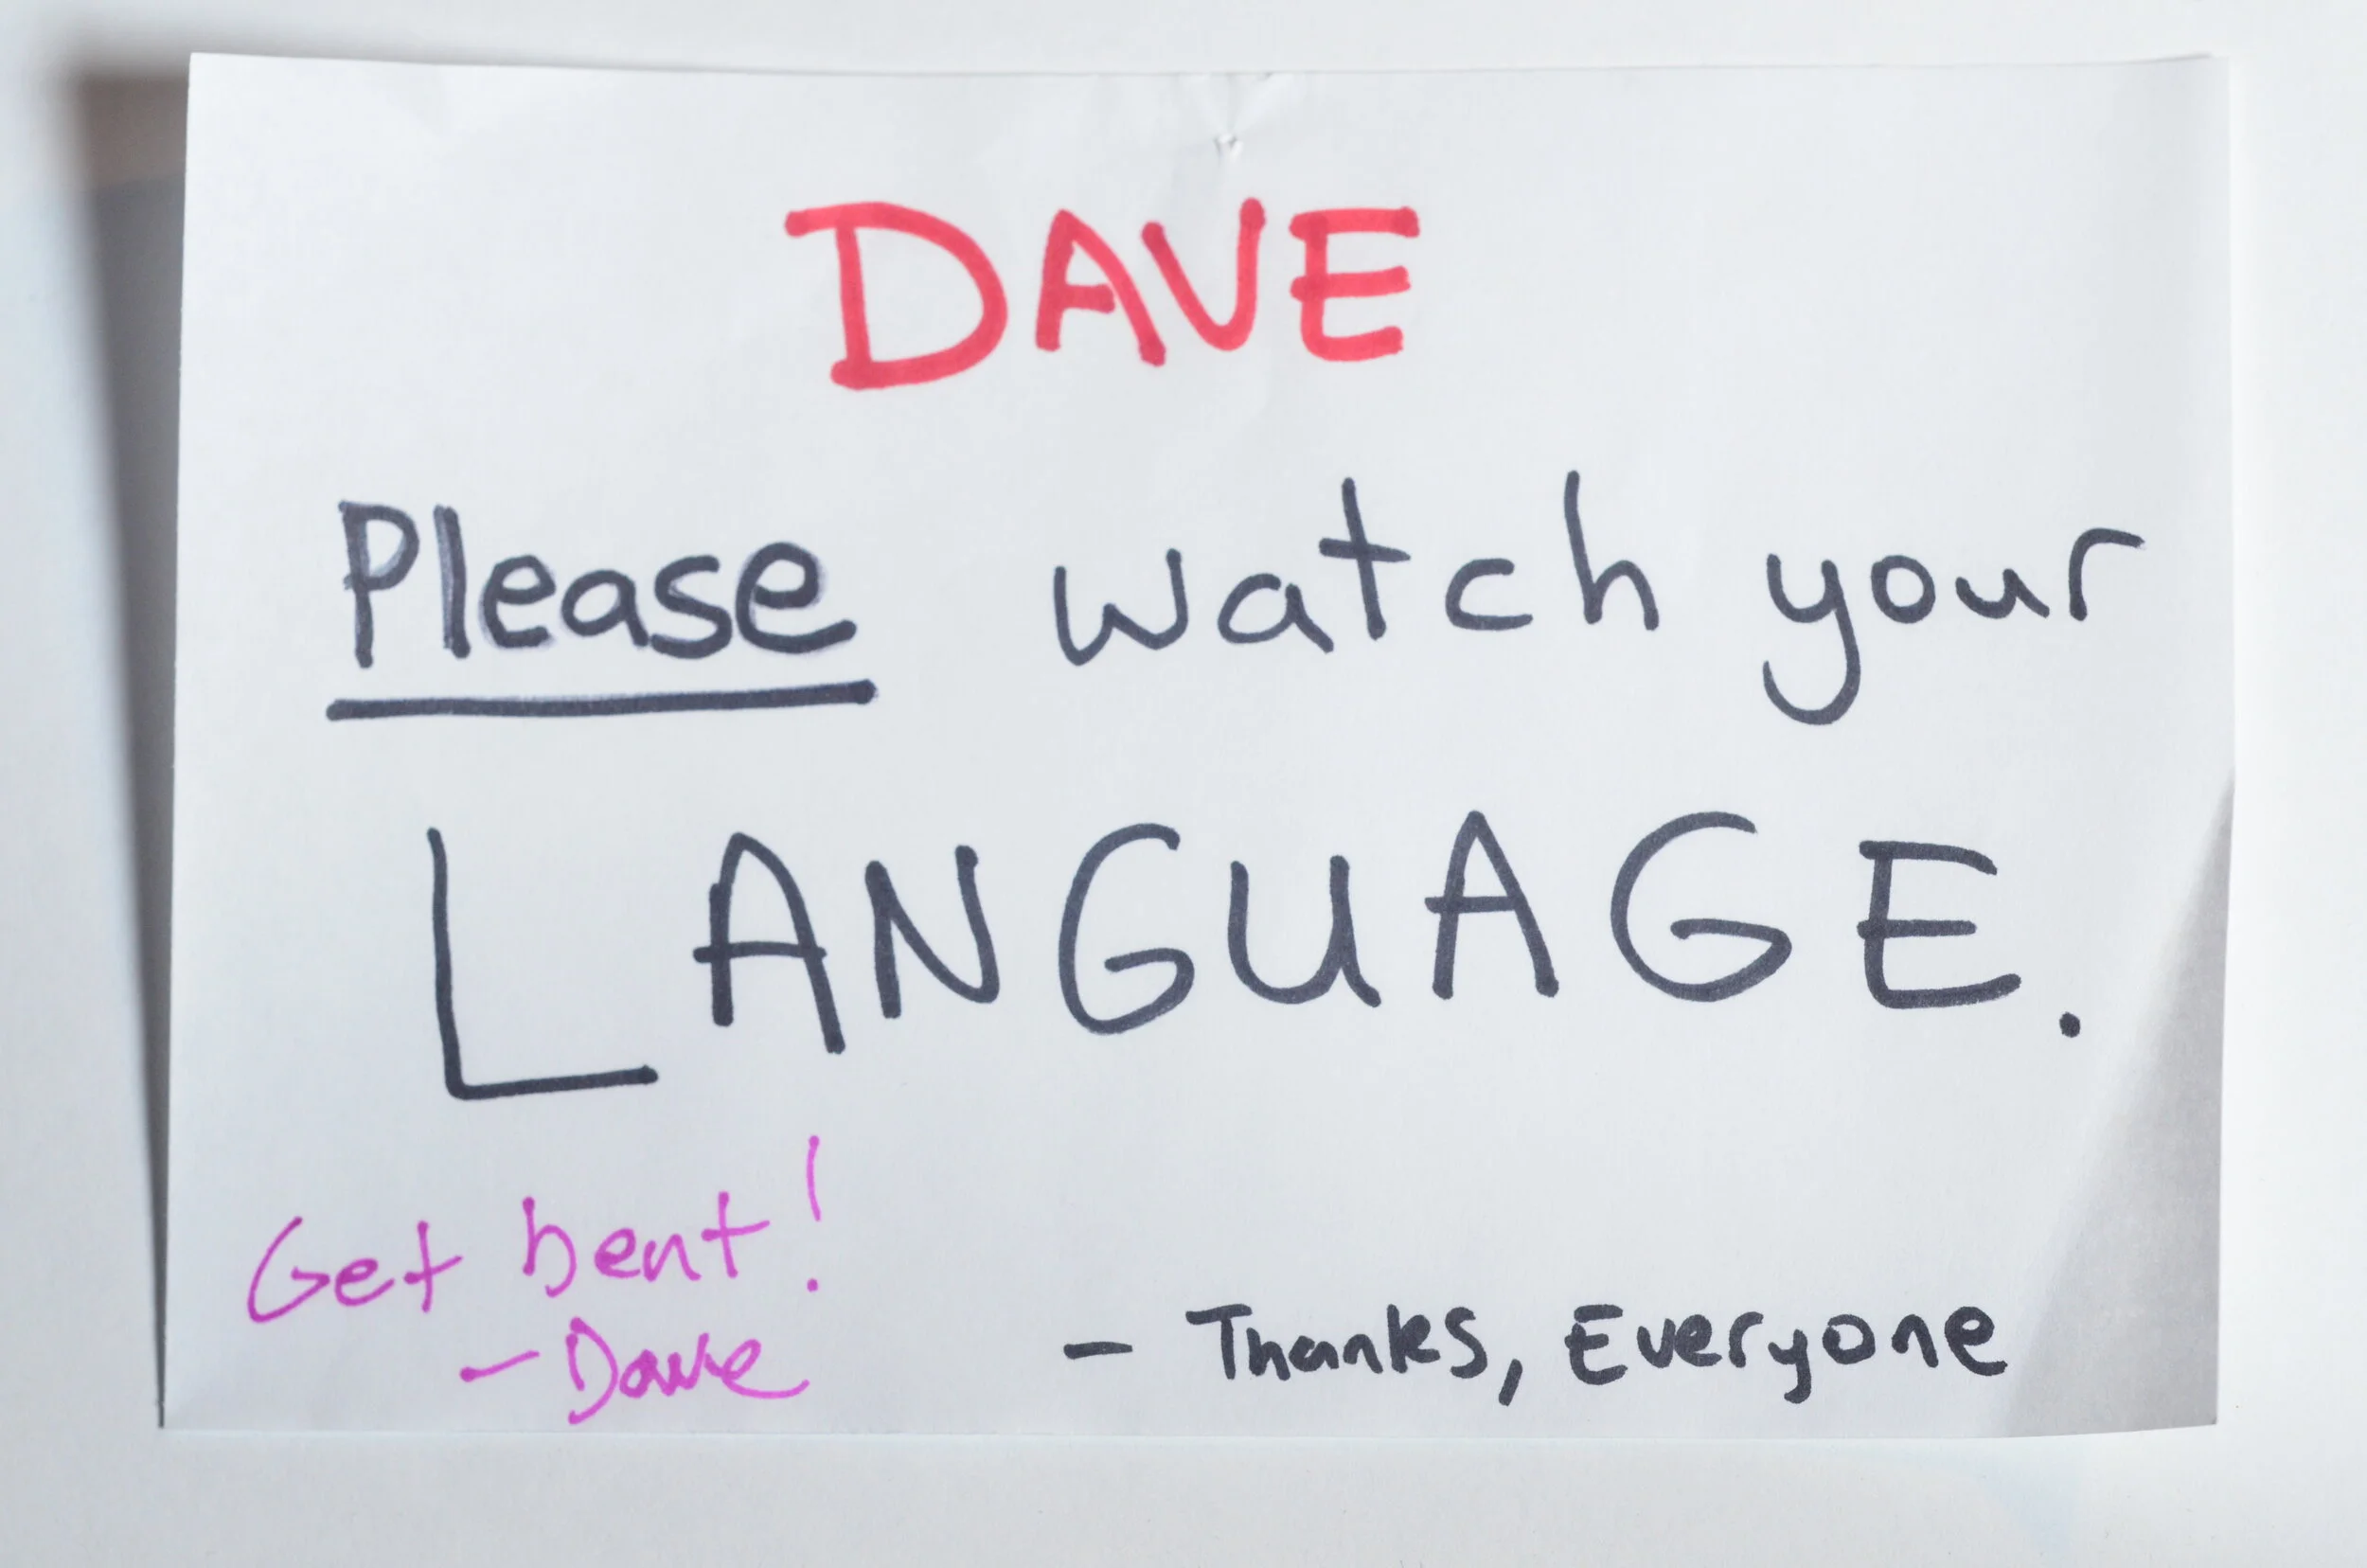 DAVE
Please watch your
LANGUAGE.
Get bent!
- Dave
- Thanks, Everyone